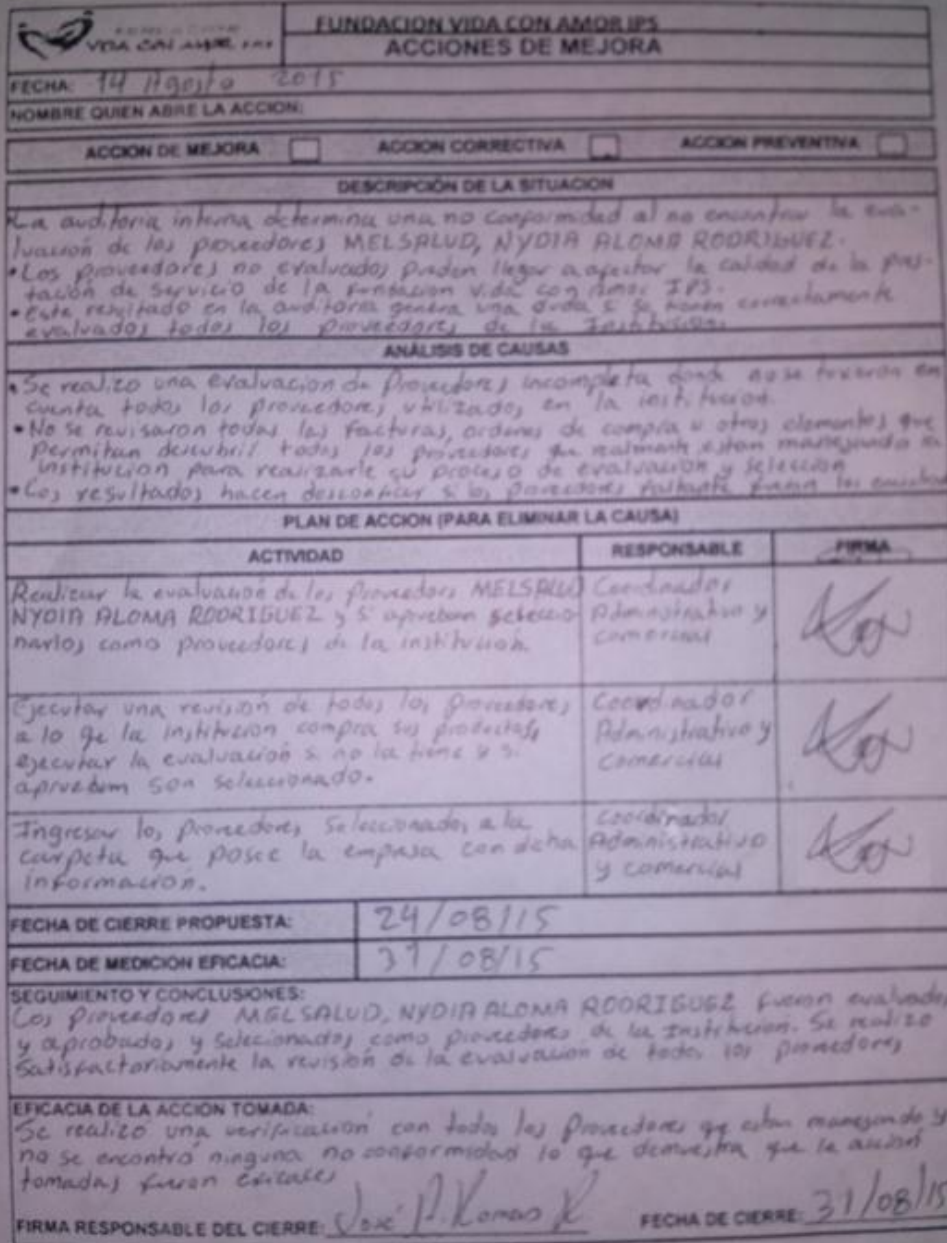 VIDA CON AMOR IPS
FUNDACION VIDA CON AMOR IPS
ACCIONES DE MEJORA
FECHA: 14 Agosto 2015
NOMBRE QUIEN ABRE LA ACCION:
ACCION DE MEJORA ACCION CORRECTIVA ACCION PREVENTIVA
DESCRIPCIÓN DE LA SITUACION
La auditoria interna determina una no conformidad al no encontrar la eva-
luación de los proveedores MELSALUD, NYDIA ALOMA RODRIGUEZ.
• Los proveedores no evaluados pueden llegar a afectar la calidad de la pres-
tación de servicio de la fundacion vida con amor IPS.
• Este resultado en la auditoria genera una duda si se tienen correctamente
evaluados todos los proveedores de la Institución.
ANÁLISIS DE CAUSAS
• Se realizo una evaluacion de Proveedores incompleta donde no se tuvieron en
cuenta todos los proveedores utilizados en la institucion.
• No se revisaron todas las facturas, ordenes de compra u otros elementos que
permitan descubrir todos los proveedores que realmente estan manejando la
institucion para realizarle su proceso de evaluación y selección
• Los resultados hacen desconfiar si los proveedores faltante fueron los
PLAN DE ACCION (PARA ELIMINAR LA CAUSA)
ACTIVIDAD RESPONSABLE FIRMA
Realizar la evaluación de los proveedores MELSALUD
NYDIA ALOMA RODRIGUEZ y si aprueban seleccio
narlos como proveedores de la institución.
Coordinador
Administrativo y
comercial
Ejecutar una revisión de todos los proveedores
a lo qe la institucion compra sus productos,
ejecutar la evaluación si no la tiene y si
aprueban son seleccionado.
Coordinador
Administrativo y
comercial
Ingresar los proveedores seleccionados a la
carpeta que posee la empresa con dicha
información.
coordinador
Administrativo
y comercial
FECHA DE CIERRE PROPUESTA: 24/08/15
FECHA DE MEDICION EFICACIA: 31/08/15
SEGUIMIENTO Y CONCLUSIONES:
Los proveedores MELSALUD, NYDIA ALOMA RODRIGUEZ fueron evaluados
y aprobados y seleccionados como proveedores de la Institucion. Se realizo
satisfactoriamente la revisión de la evaluación de todos los proveedores
EFICACIA DE LA ACCION TOMADA:
Se realizó una verificación con todos los proveedores qe estan manejando y
no se encontró ninguna no conformidad lo que demuestra que la acción
tomadas fueron eficaces
FIRMA RESPONSABLE DEL CIERRE: José FECHA DE CIERRE: 31/08/15